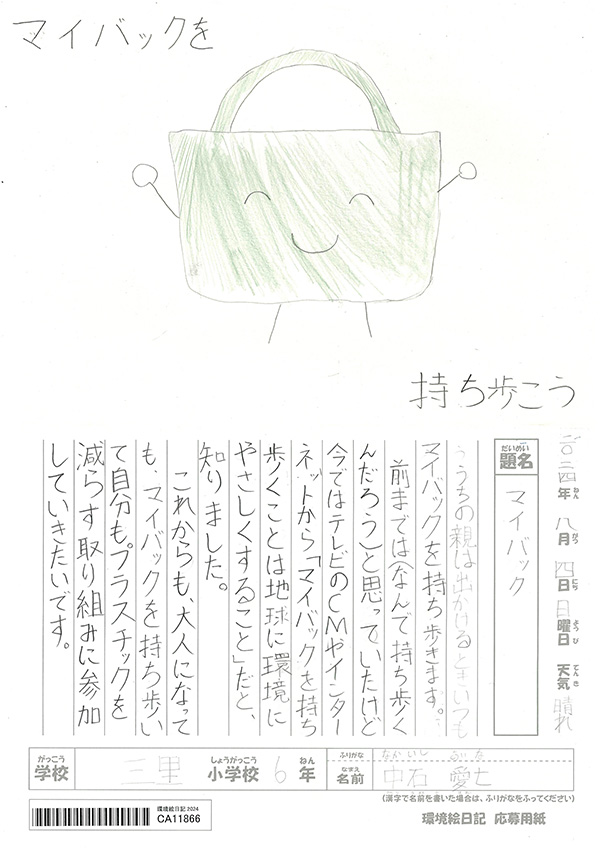 マイバックを
持ち歩こう
二〇二四年 八月 四日 日曜日 天気 晴れ
ねん がつ にち ようび てんき
だいめい
題名
マイバック
うちの親は出かけるときいつも
マイバックを持ち歩きます。
前までは(なんで持ち歩く
んだろう)と思っていたけど
今ではテレビのCMやインター
ネットから「マイバックを持ち
歩くことは地球に環境に
やさしくすること」だと、
知りました。
これからも、大人になって
も、マイバックを持ち歩い
て自分も。プラスチックを
減らす取り組みに参加
していきたいです。
がっこう
学校
三里
しょうがっこう
小学校
6
ねん
年
ふりがな
なまえ
名前
なかいし
中石 愛七
(漢字で名前を書いた場合は、ふりがなをふってください)
環境絵日記2024
CA11866
環境絵日記 応募用紙